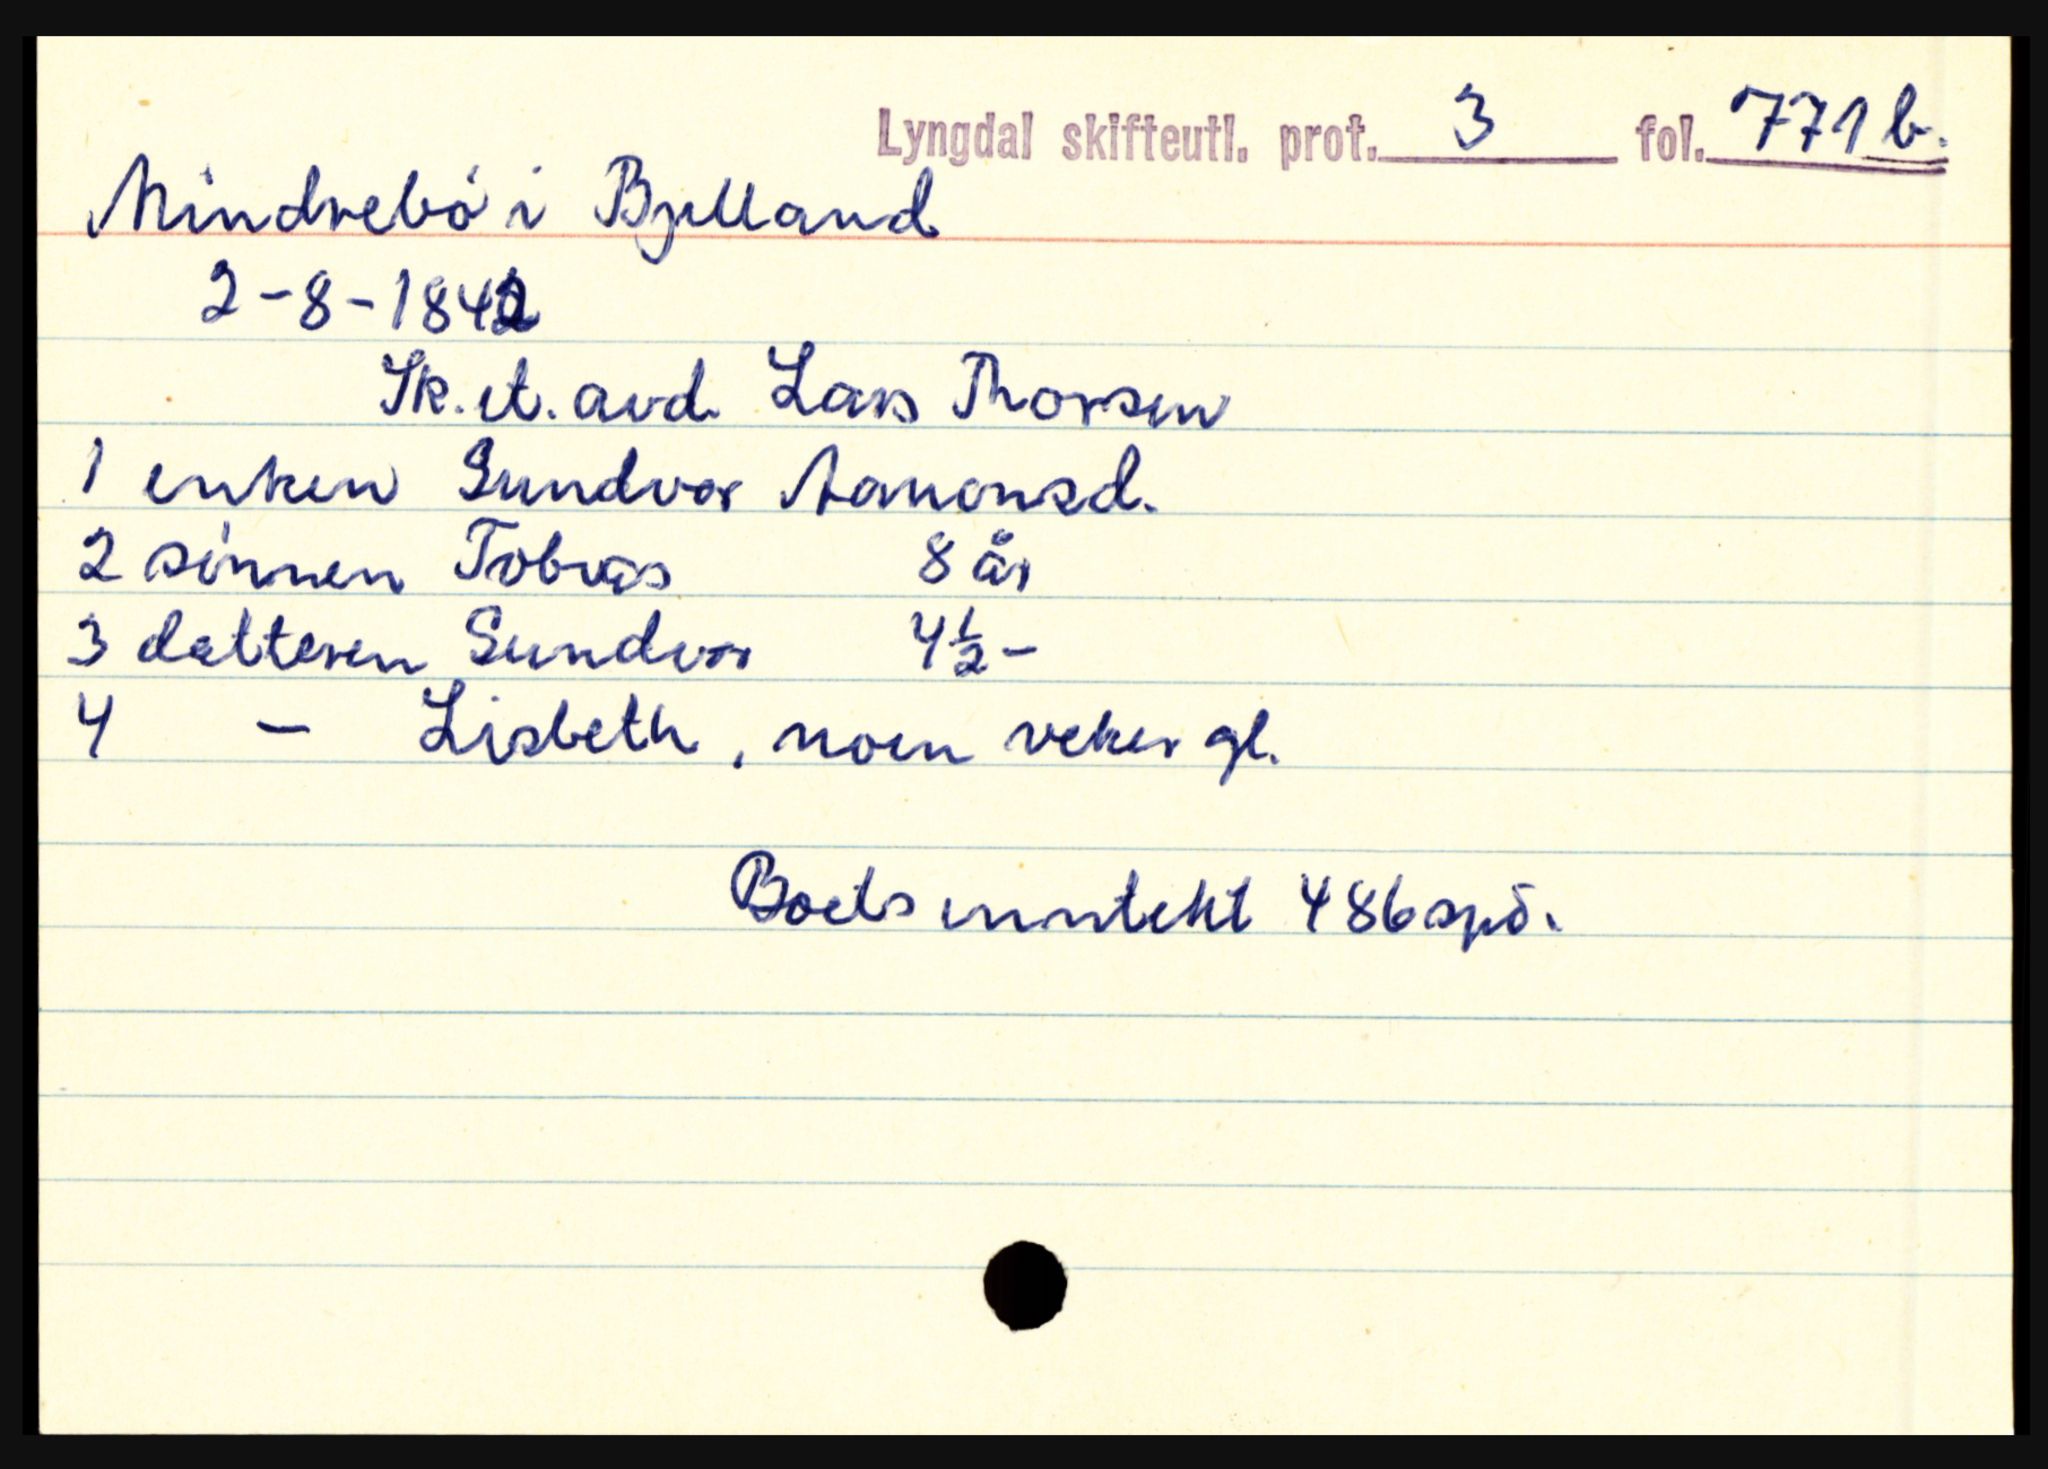 Lyngdal skifteutl. prot. 3 fol. 771 b.
Mindrebö i Bjelland
2-8-1842
Sk. et. avd. Lars Thorsen
1 enken Gundvor Aamonsd.
2 sönnen Tobias 8 år
3 datteren Gundvor 4½ -
4 - Lisbeth, noen veker gl.
Boets inntekt 486 spd.